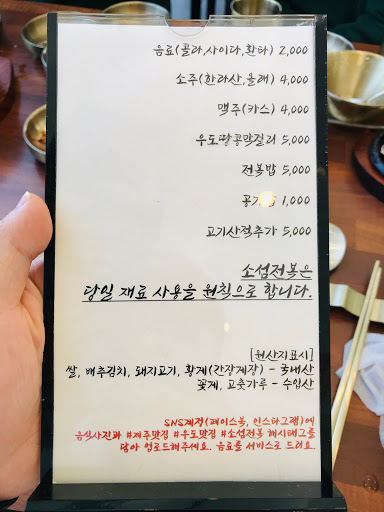 음료(콜라,사이다,환타) 2,000
소주(한라산,올래) 4,000
맥주(카스) 4,000
우도땅콩막걸리 5,000
전복밥 5,000
1,000
고기산적추가 5,000
소섬전복은
당일 재료 사용을 원칙으로 합니다.
[원산지표시]
쌀, 배추김치, 돼지고기, 황게(간장게장) - 국내산
꽃게, 고춧가루 - 수입산
SNS계정(페이스북, 인스타그램)에
음식사진과 #제주맛집 #우도맛집 #소섬전복 해시태그를
달아 업로드해주세요. 음료를 서비스로 드려요.